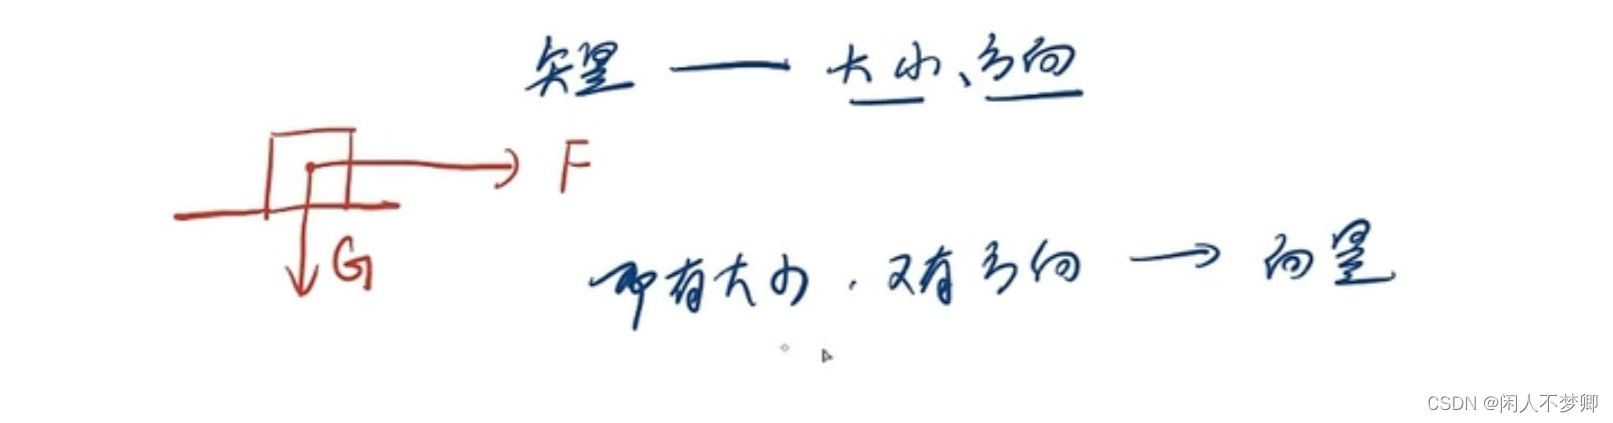 矢量 — 大小、方向
F
G
即有大小，又有方向 → 向量
CSDN @闲人不梦卿